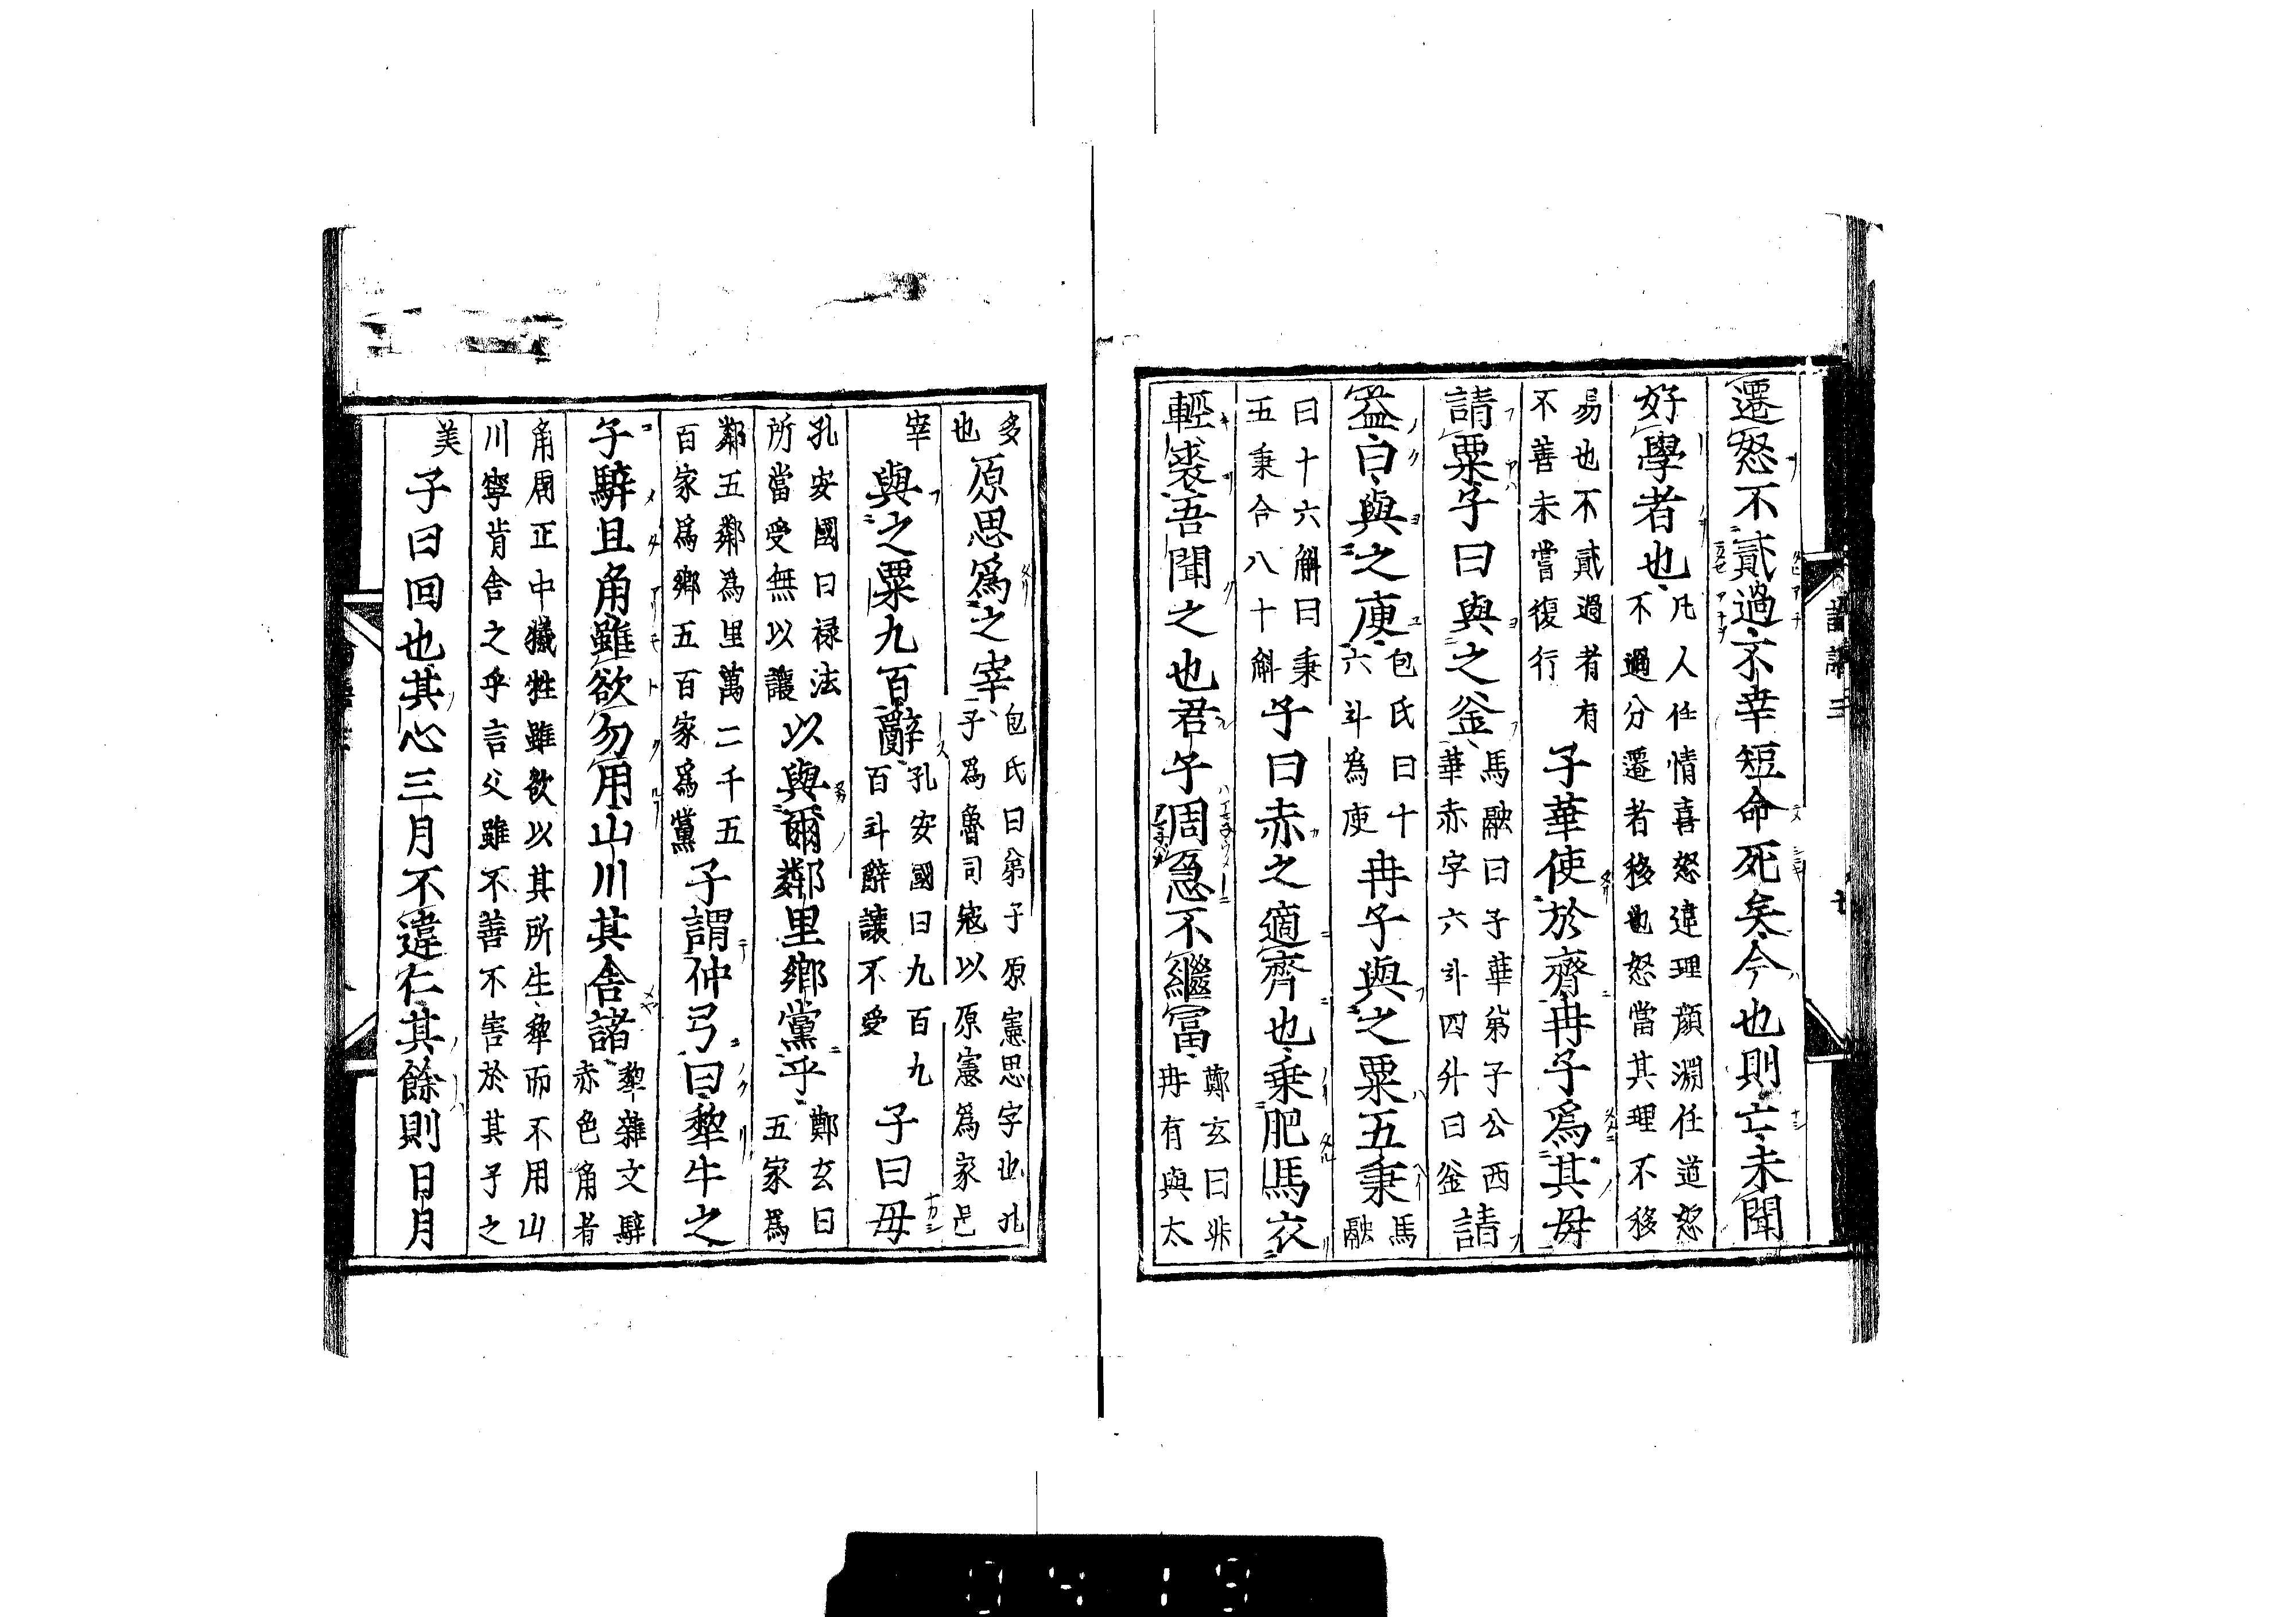 遷怒不貳過不幸短命死矣今也則亡未聞
好學者也凡人任情喜怒違理顔淵任道怒
不過分遷者移也怒當其理不移
易也不貳過者有
不善未嘗復行子華使於齊冉子爲其母
請粟子曰與之釜馬融曰子華弟子公西
華赤字六斗四升曰釜請
益曰與之庾包氏曰十
六斗爲庾冉子與之粟五秉馬
融
曰十六斛曰秉
五秉合八十斛子曰赤之適齊也乗肥馬衣
輕裘吾聞之也君子周急不繼冨鄭玄曰非
冉有與太
多
也原思爲之宰包氏曰弟子原憲思字也孔
子爲魯司冦以原憲爲家邑
宰
與之粟九百辭孔安國曰九百九
百斗辭讓不受子曰毋
孔安國曰禄法
所當受無以讓以與爾鄰里鄉黨乎鄭玄曰
五家爲
鄰五鄰爲里萬二千五
百家爲鄉五百家爲黨子謂仲弓曰犂牛之
子騂且角雖欲勿用山川其舎諸犂雜文騂
赤色角者
角周正中犠牲雖欲以其所生犂而不用山
川寧肯舎之乎言父雖不善不害於其子之
美
子曰回也其心三月不違仁其餘則日月
0419